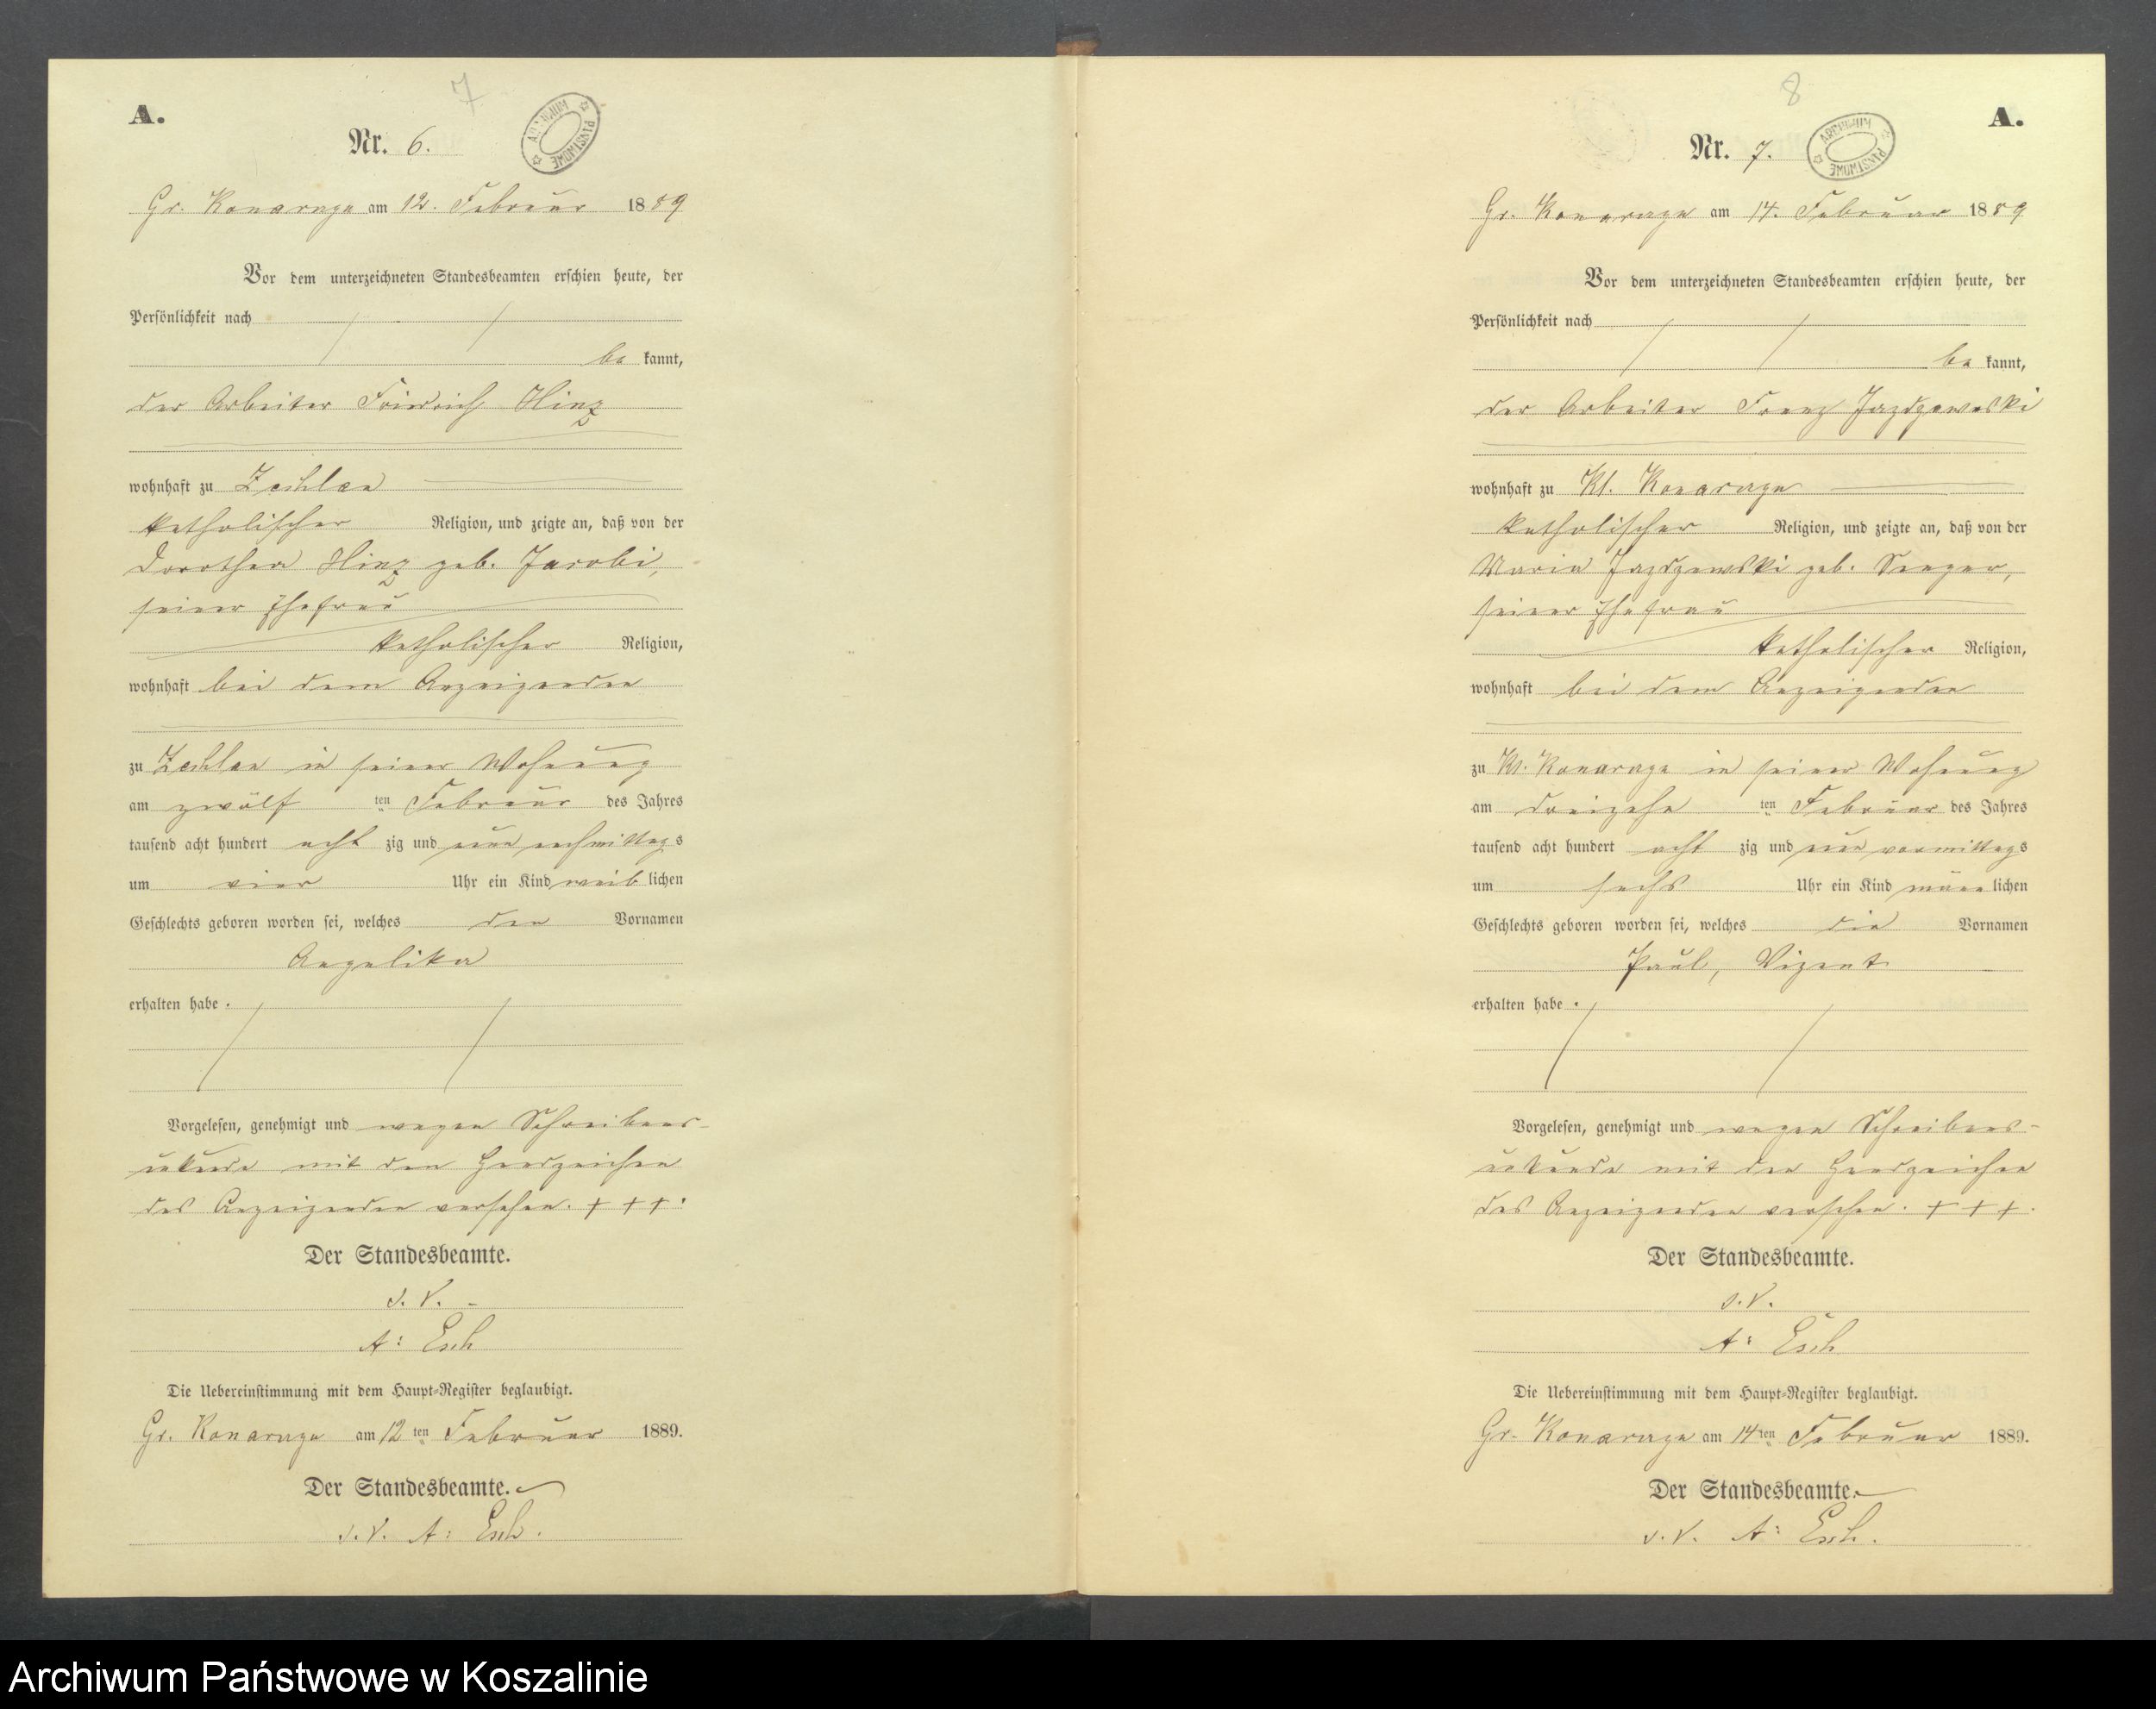 7
A.
Nr. 6.
ARCHIWUM PAŃSTWOWE
Gr. Konarzyn am 12. Februar 1889
Vor dem unterzeichneten Standesbeamten erschien heute, der
Persönlichkeit nach
be kannt,
der Arbeiter Friedrich Hinz
wohnhaft zu Zechlau
katholischer Religion, und zeigte an, daß von der
Dorothea Hinz geb. Jacobi,
seiner Ehefrau
katholischer Religion,
wohnhaft bei dem Anzeigenden
zu Zechlau in seiner Wohnung
am zwölf ten Februar des Jahres
tausend acht hundert acht zig und neun nachmittags
um vier Uhr ein Kind weib lichen
Geschlechts geboren worden sei, welches den Vornamen
Angelika
erhalten habe.
Vorgelesen, genehmigt und wegen Schreibens-
unkunde mit den Handzeichen
des Anzeigenden versehen. + + +.
Der Standesbeamte.
J. V.
A: Esch
Die Uebereinstimmung mit dem Haupt-Register beglaubigt.
Gr. Konarzyn am 12 ten Februar 1889.
Der Standesbeamte.
J. V. A: Esch.
8
A.
Nr. 7.
ARCHIWUM PAŃSTWOWE
Gr. Konarzyn am 14. Februar 1889
Vor dem unterzeichneten Standesbeamten erschien heute, der
Persönlichkeit nach
be kannt,
der Arbeiter Franz Jazdzewski
wohnhaft zu Kl. Konarzyn
katholischer Religion, und zeigte an, daß von der
Maria Jazdzewski geb. Seeger,
seiner Ehefrau
katholischer Religion,
wohnhaft bei dem Anzeigenden
zu Kl. Konarzyn in seiner Wohnung
am dreizehn ten Februar des Jahres
tausend acht hundert acht zig und neun vormittags
um sechs Uhr ein Kind männ lichen
Geschlechts geboren worden sei, welches die Vornamen
Paul, Vizent
erhalten habe.
Vorgelesen, genehmigt und wegen Schreibens-
unkunde mit den Handzeichen
des Anzeigenden versehen. + + +.
Der Standesbeamte.
J. V.
A: Esch
Die Uebereinstimmung mit dem Haupt-Register beglaubigt.
Gr. Konarzyn am 14 ten Februar 1889.
Der Standesbeamte.
J. V. A: Esch.
Archiwum Państwowe w Koszalinie